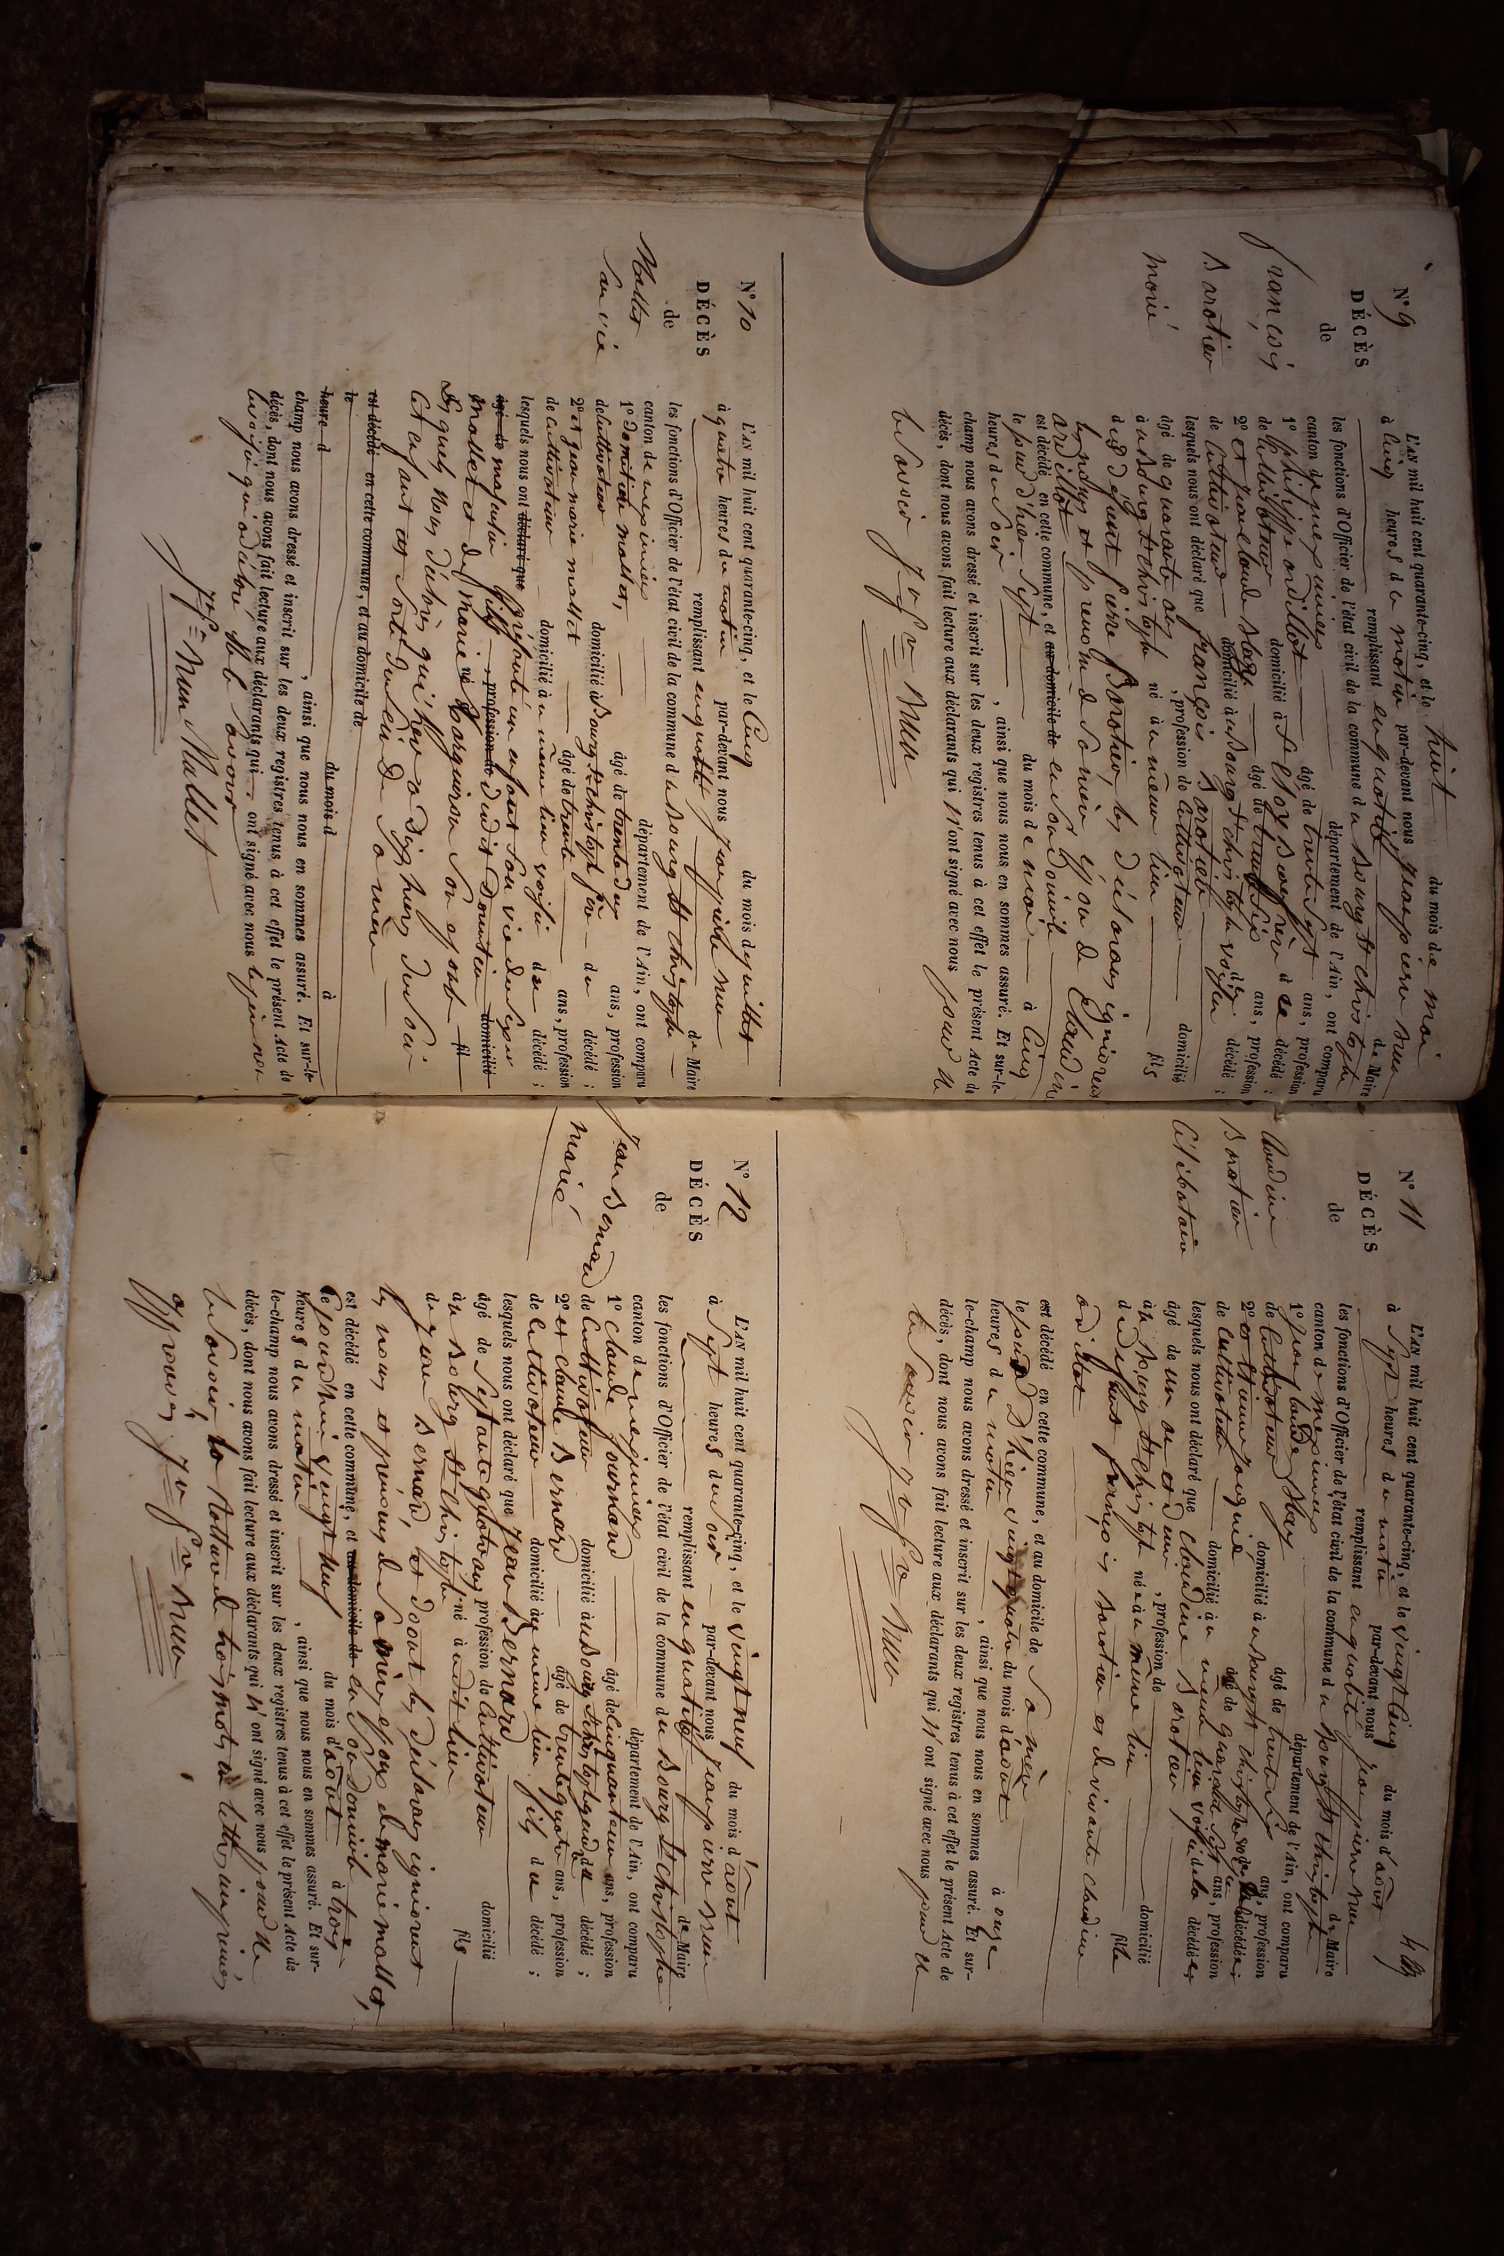 N° 9
DÉCÈS
de
François
Barotier
marié
L'AN mil huit cent quarante-cinq, et le huit du mois de mai
à cinq heures du matin par-devant nous jean pierre
remplissant en qualité de Maire
les fonctions d'Officier de l'état civil de la commune du Bourg St christophe
canton de meximieux département de l'Ain, ont comparu
1° philippe ordillot âgé de trente sept ans, profession
de Cultivateur domicilié à St Eloy beau frère du décédé ;
2° et jean claude âgé de trente six ans, profession
de Cultivateur domicilié au bourg St christophe voisin du décédé ;
lesquels nous ont déclaré que françois Barotier
âgé de quarante ans, profession de Cultivateur domicilié
au Bourg St christophe né au même lieu fils
de defunt pierre Barotier, les déclarans ignorent
les noms et prenoms de sa mère époux de Claudine
ordillot
est décédé en cette commune, et au domicile de en son domicile
le jour d'hier sept du mois de mai à cinq
heures du soir, ainsi que nous nous en sommes assuré. Et sur-le-
champ nous avons dressé et inscrit sur les deux registres tenus à cet effet le présent Acte de
décès, dont nous avons fait lecture aux déclarants qui n'ont signé avec nous pour ne
le savoir
N° 10
DÉCÈS
de
Mallet
San vie
L'AN mil huit cent quarante-cinq, et le Cinq du mois de juillet
à quatre heures du matin par-devant nous jean pierre
remplissant en qualité de Maire
les fonctions d'Officier de l'état civil de la commune du Bourg St christophe
canton de meximieux département de l'Ain, ont comparu
1° domitien mallet, âgé de trente deux ans, profession
de cultivateur domicilié à Bourg St christophe père du décédé ;
2° et jean marie mallet âgé de trente ans, profession
de cultivateur domicilié au même lieu voisin du décédé ;
lesquels nous ont déclaré que présenté un enfant sans vie du sexe
âgé de masculin fils profession de dudit domitien domicilié
mallet et de marie né à Son epouse fil
Lesquels nous déclarés qu'hier à dix heures du soir
Cet enfant est sorti du sein de Sa mère
est décédé en cette commune, et au domicile de
le du mois d à
heure d, ainsi que nous nous en sommes assuré. Et sur-le-
champ nous avons dressé et inscrit sur les deux registres tenus à cet effet le présent Acte de
décès, dont nous avons fait lecture aux déclarants qui ont signé avec nous le père non
Mallet
N° 11
DÉCÈS
de
Claudine
Barotier
Célibataire
L'AN mil huit cent quarante-cinq, et le vingt Cinq du mois d'août
à sept heures du matin par-devant nous jean pierre
remplissant en qualité de Maire
les fonctions d'Officier de l'état civil de la commune du Bourg St christophe
canton de meximieux département de l'Ain, ont comparu
1° jean claude âgé de trente six ans, profession
de Cultivateur domicilié au Bourg St christophe voisin du décédé ;
2° et âgé de quarante sept ans, profession
de cultivateur domicilié au même lieu voisin de la décédée
lesquels nous ont déclaré que claudine Barotier
âgé de un an et demi, profession de domicilié
au Bourg St christophe née au même lieu fille
de defunt françois Barotier et de vivante claudine
ordillot
est décédé en cette commune, et au domicile de Sa mère
le jour d'hier vingt quatre du mois d'août à onze
heures du matin, ainsi que nous nous en sommes assuré. Et sur-
le-champ nous avons dressé et inscrit sur les deux registres tenus à cet effet le présent Acte de
décès, dont nous avons fait lecture aux déclarants qui n'ont signé avec nous pour ne
le savoir
N° 12
DÉCÈS
de
Jean Bernard
marié
L'AN mil huit cent quarante-cinq, et le vingt neuf du mois d'août
à sept heures du soir par-devant nous jean pierre
remplissant en qualité de Maire
les fonctions d'Officier de l'état civil de la commune du Bourg St christophe
canton de meximieux département de l'Ain, ont comparu
1° claude âgé de cinquante un ans, profession
de Cultivateur domicilié au Bourg St christophe gendre du décédé ;
2° et claude Bernard âgé de trente quatre ans, profession
de Cultivateur domicilié au même lieu fils du décédé ;
lesquels nous ont déclaré que jean Bernard
âgé de Septante quatre ans, profession de Cultivateur domicilié
au Bourg St christophe né à udit lieu fils
de jean Bernard, et dont les déclarans ignorent
les noms et prénoms de Sa mère, époux de marie mallet,
est décédé en cette commune, et au domicile de en son domicile
le jourd'hui vingt neuf du mois d'août à trois
heures du matin, ainsi que nous nous en sommes assuré. Et sur-
le-champ nous avons dressé et inscrit sur les deux registres tenus à cet effet le présent Acte de
décès, dont nous avons fait lecture aux déclarants qui n'ont signé avec nous pour ne
le savoir, la rature de trois mots en lettres imprimées
approuvés